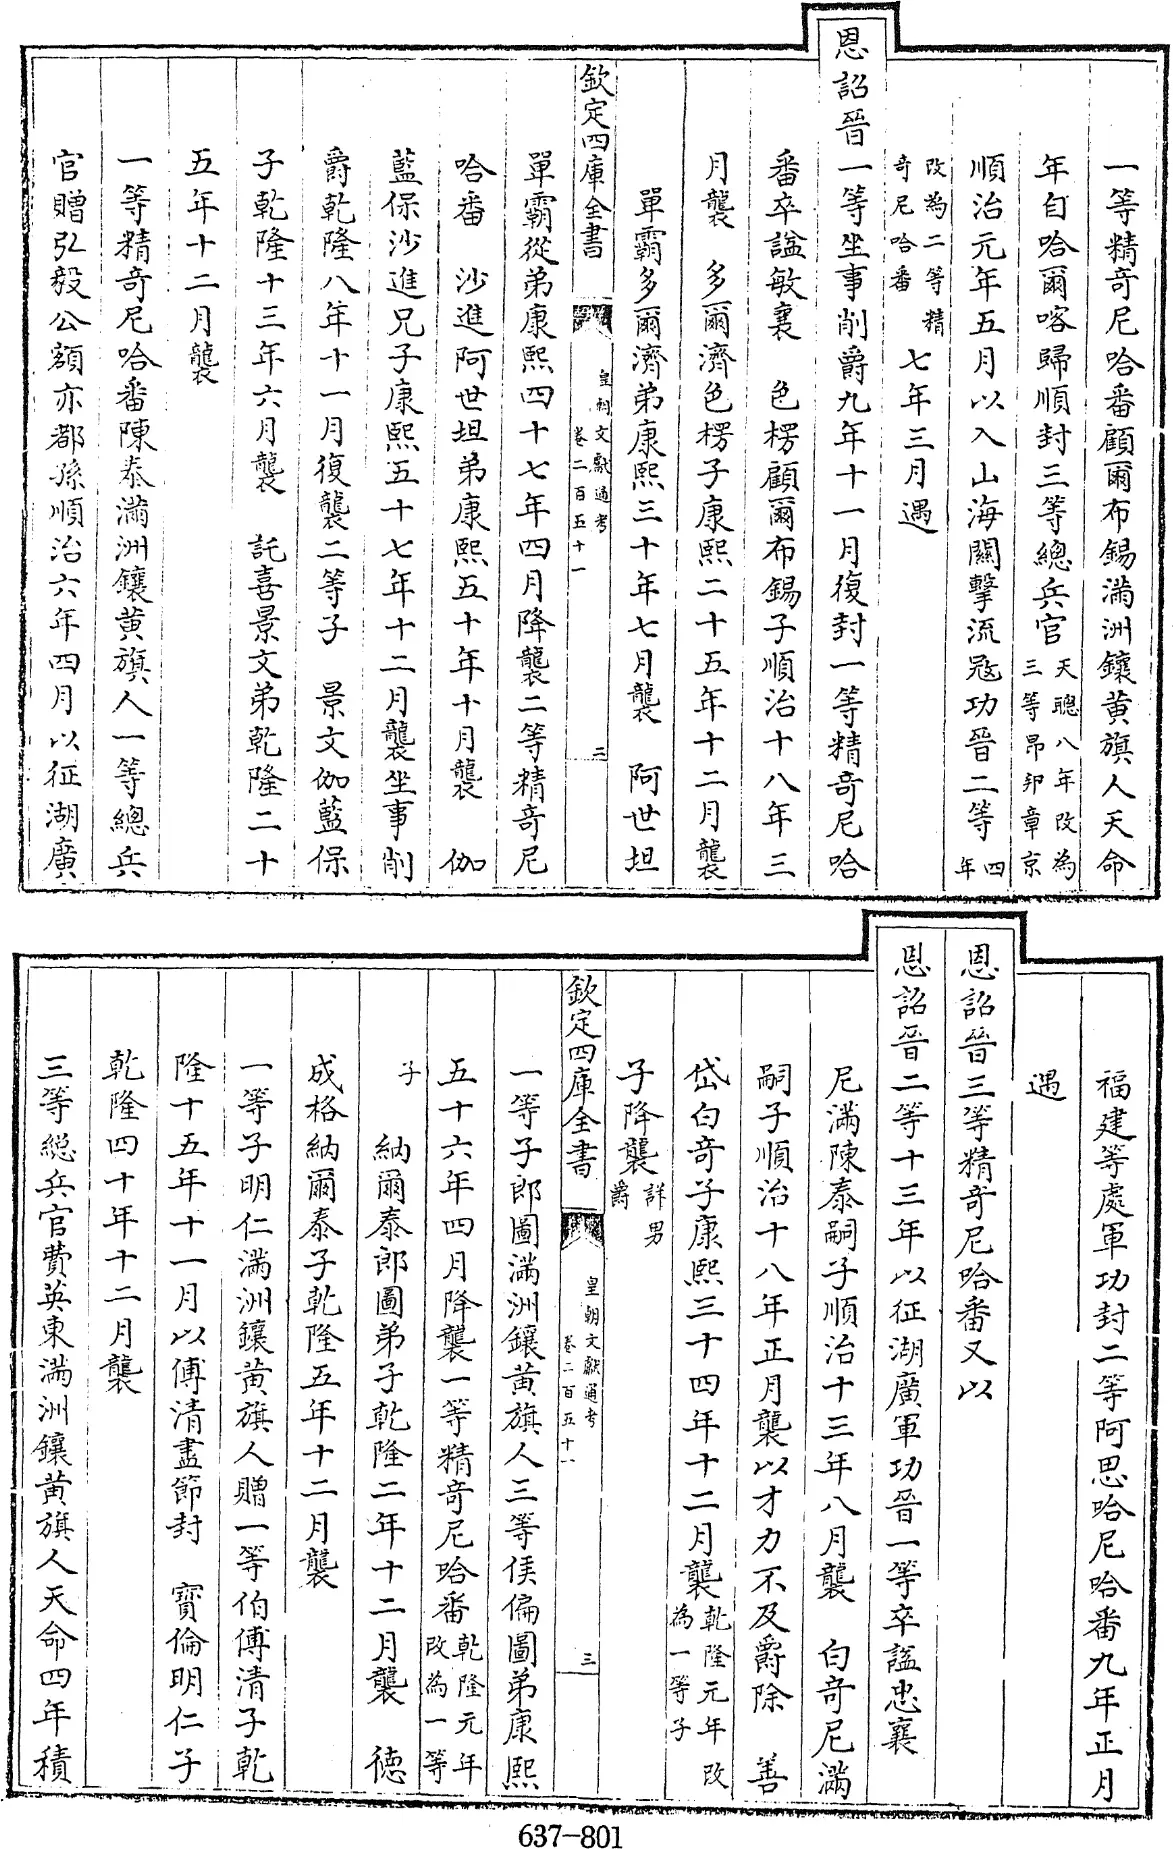 一等精奇尼哈番顧爾布錫滿洲鑲黃旗人天命
年自哈爾喀歸順封三等總兵官天聰八年改為三等昂邦章京
順治元年五月以入山海關擊流寇功晉二等四年
改為二等精奇尼哈番七年三月遇
恩詔晉一等坐事削爵九年十一月復封一等精奇尼哈
番卒諡敏襄 色楞顧爾布錫子順治十八年三
月襲 多爾濟色楞子康熙二十五年十二月襲
單霸多爾濟弟康熙三十年七月襲 阿世坦
欽定四庫全書 皇朝文獻通考 卷二百五十一 三
單霸從弟康熙四十七年四月降襲二等精奇尼
哈番 沙進阿世坦弟康熙五十年十月襲 伽
藍保沙進兄子康熙五十七年十二月襲坐事削
爵乾隆八年十一月復襲二等子 景文伽藍保
子乾隆十三年六月襲 託喜景文弟乾隆二十
五年十二月襲
一等精奇尼哈番陳泰滿洲鑲黃旗人一等總兵
官贈弘毅公額亦都孫順治六年四月以征湖廣
福建等處軍功封二等阿思哈尼哈番九年正月
遇
恩詔晉三等精奇尼哈番又以
恩詔晉二等十三年以征湖廣軍功晉一等卒諡忠襄
尼滿陳泰嗣子順治十三年八月襲 白奇尼滿
嗣子順治十八年正月襲以才力不及爵除 善
岱白奇子康熙三十四年十二月襲乾隆元年改為一等子
子降襲詳男爵
欽定四庫全書 皇朝文獻通考 卷二百五十一 三
一等子郎圖滿洲鑲黃旗人三等侯偏圖弟康熙
五十六年四月降襲一等精奇尼哈番乾隆元年改為一等
子 納爾泰郎圖弟子乾隆二年十二月襲 德
成格納爾泰子乾隆五年十二月襲
一等子明仁滿洲鑲黃旗人贈一等伯傅清子乾
隆十五年十一月以傅清盡節封 寶倫明仁子
乾隆四十年十二月襲
三等總兵官費英東滿洲鑲黃旗人天命四年積
637-801